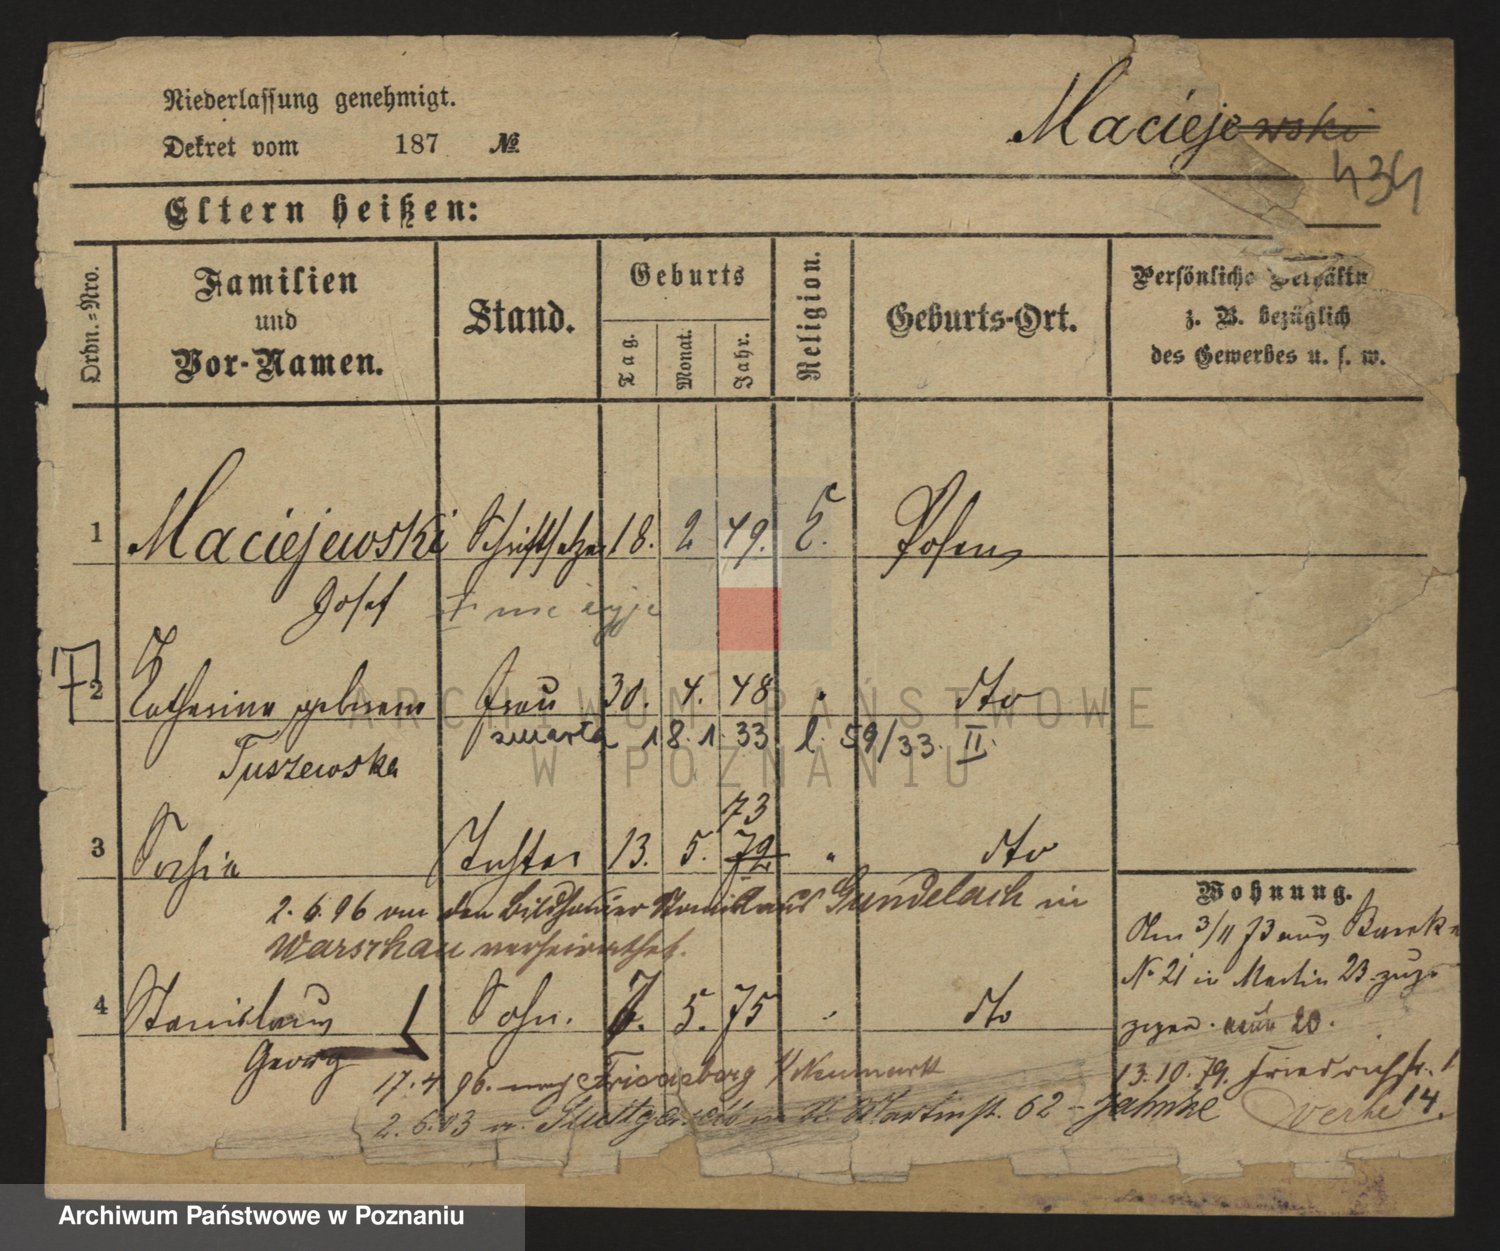 Niederlassung genehmigt.
Maciejewski
Dekret vom 187 №
434
Eltern heißen:
Ordn.=Nro.
Familien
und
Vor-Namen.
Stand.
Geburts
Tag.
Monat.
Jahr.
Religion.
Geburts-Ort.
Persönliche Verhältn
z. B. bezüglich
des Gewerbes u. s. w.
1 Maciejewski Schriftsetzer 18. 2 49. Posen
Josef nie żyje
2 Catharina geborene Frau 30. 4. 48 " dto
Tuszewska zmarła 18.1.33 l. 59/33. II.
73
3 Sophie Tochter 13. 5. 72 " dto
2.6.96 an den Bildhauer Gundelach in
Warschau verheirathet.
Wohnung.
Am 3/11 73 aus
No 21 in Martin 23 zuge
zogen. 20.
4 Stanislaus Sohn. 7. 5. 75 " dto
Georg
13.10.79. Friedrichstr. 1
17.4 96. nach Friedeberg N/Neumarkt
2.6.03 v. Stuttgart St. Martinstr. 62 - Jahnke 14.
ARCHIWUM PAŃSTWOWE
W POZNANIU
Archiwum Państwowe w Poznaniu